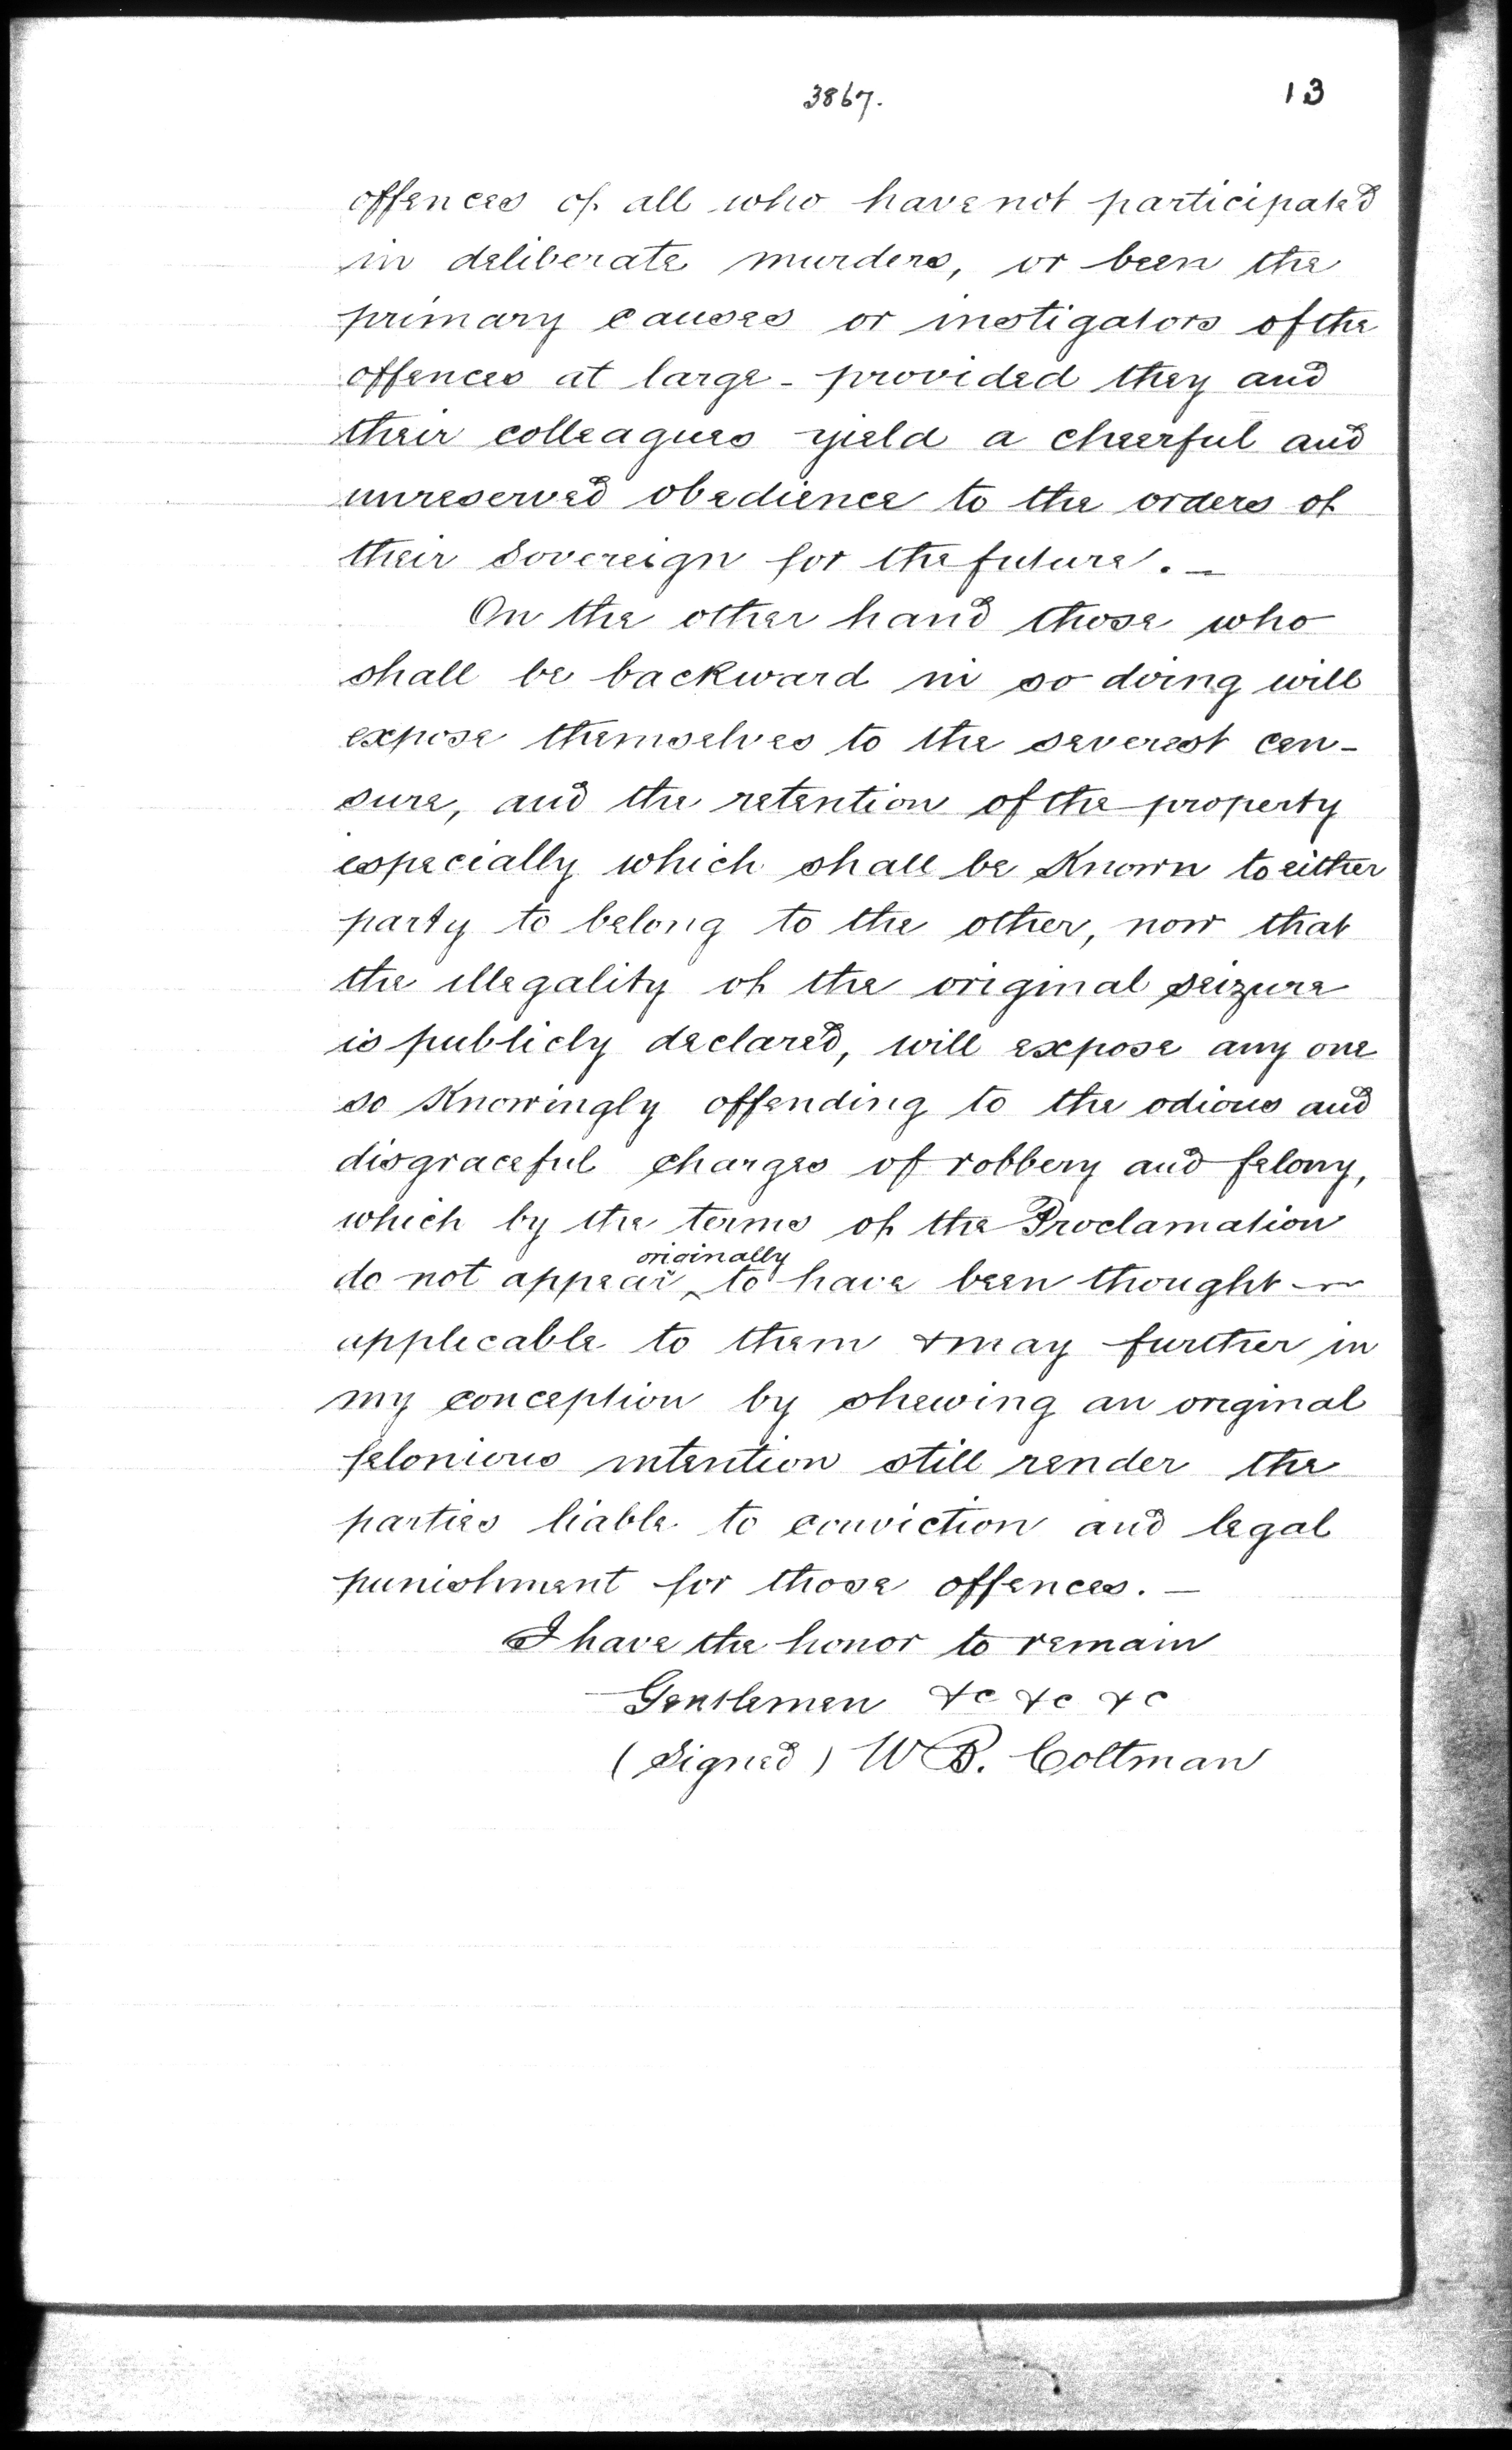 3867. 13
offences of all who have not participated
in deliberate murders, or been the
primary causes or instigators of the
offences at large - provided they and
their colleagues yield a cheerful and
unreserved obedience to the orders of
their Sovereign for the future. -
On the other hand those who
shall be backward in so doing will
expose themselves to the severest cen-
sure, and the retention of the property
especially which shall be Known to either
party to belong to the other, now that
the illegality of the original seizure
is publicly declared, will expose any one
so Knowingly offending to the odious and
disgraceful charges of robbery and felony,
which by the terms of the Proclamation
originally
do not appear ‸ to have been thought
applicable to them & may further in
my conception by shewing an original
felonious intention still render the
parties liable to conviction and legal
punishment for those offences. -
I have the honor to remain
Gentlemen &c &c &c
(Signed) W B. Coltman